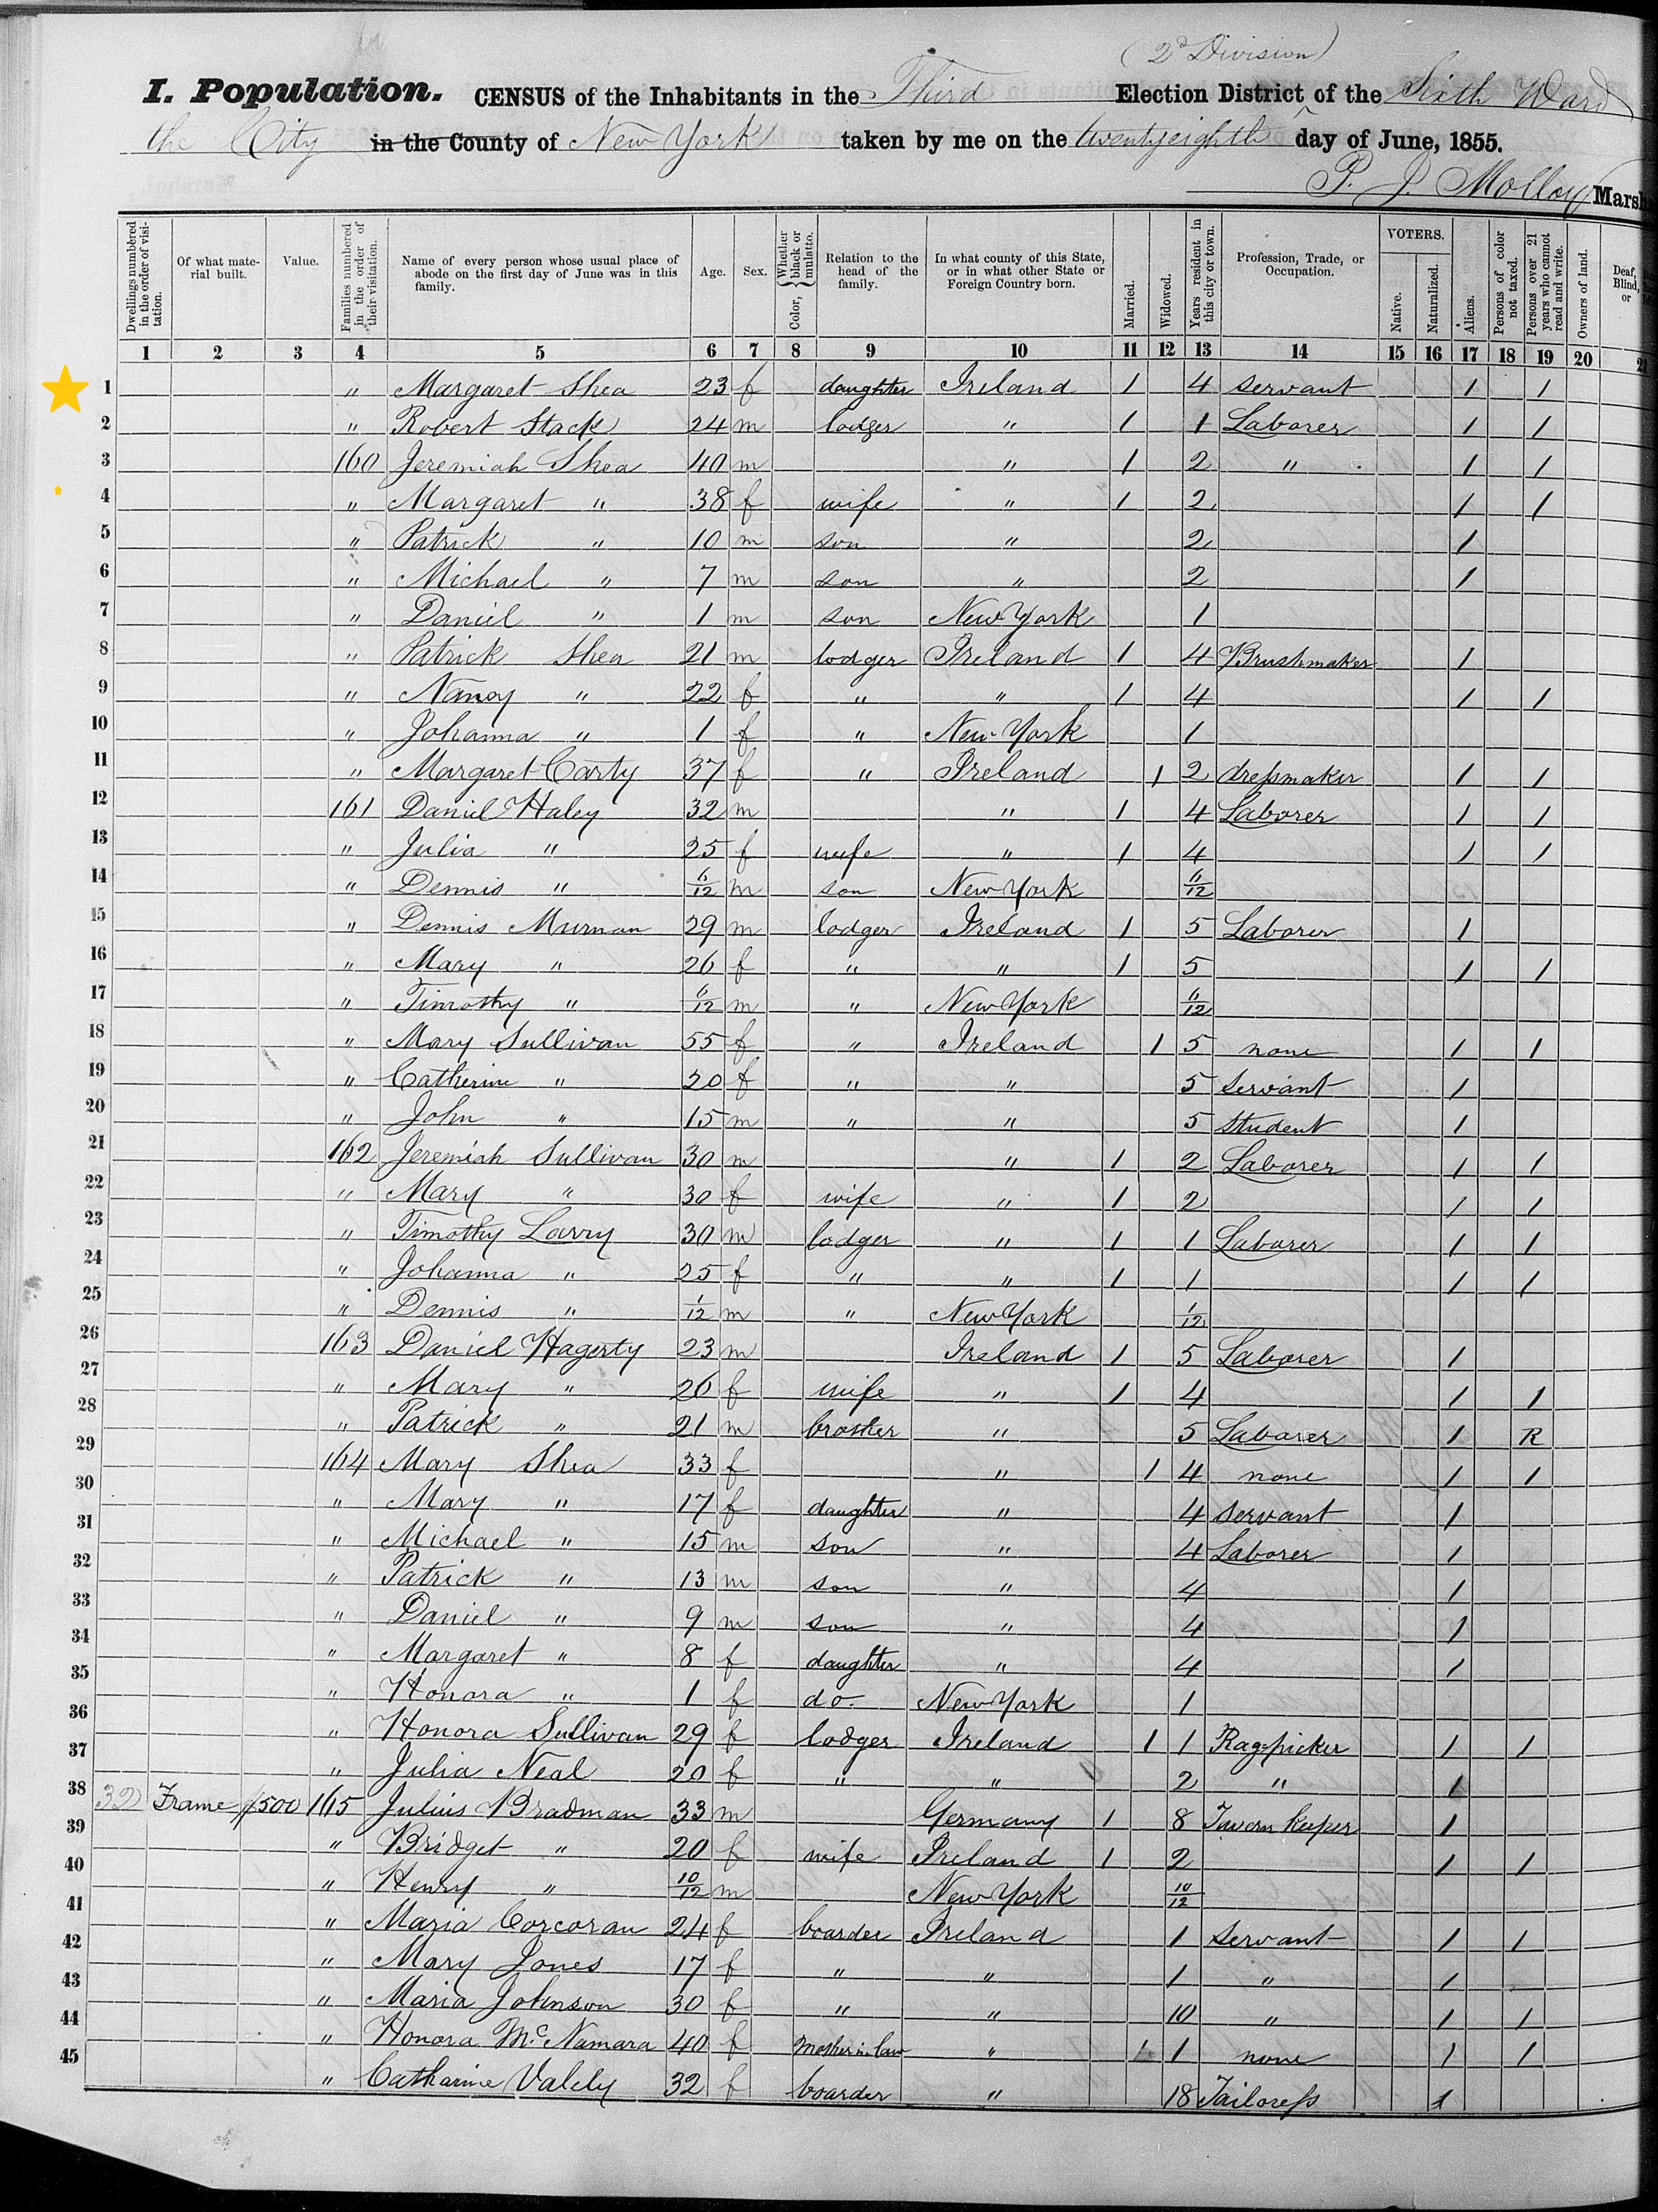 (2d Division)
I. Population. CENSUS of the Inhabitants in the Third Election District of the Sixth Ward
the City in the County of New York taken by me on the twentyeighth day of June, 1855.
P. J. Molloy Marsh
Dwellings numbered in the order of visitation. Of what material built. Value. Families numbered in the order of their visitation. Name of every person whose usual place of abode on the first day of June was in this family. Age. Sex. Color, Whether black or mulatto. Relation to the head of the family. In what county of this State, or in what other State or Foreign Country born. Married. Widowed. Years resident in this city or town. Profession, Trade, or Occupation. VOTERS. Native. Naturalized. Aliens. Persons of color not taxed. Persons over 21 years who cannot read and write. Owners of land. Deaf, Blind, or
1 2 3 4 5 6 7 8 9 10 11 12 13 14 15 16 17 18 19 20 21
1 " Margaret Shea 23 f daughter Ireland 1 4 servant 1 1
2 " Robert Stack 24 m lodger " 1 1 Laborer 1 1
3 160 Jeremiah Shea 40 m " 1 2 " 1 1
4 " Margaret " 38 f wife " 1 2 1 1
5 " Patrick " 10 m son " 2 1
6 " Michael " 7 m son " 2 1
7 " Daniel " 1 m son New York 1
8 " Patrick Shea 21 m lodger Ireland 1 4 Brushmaker 1
9 " Nancy " 22 f " " 1 4 1 1
10 " Johanna " 1 f " New York 1
11 " Margaret Carty 37 f " Ireland 1 2 dressmaker 1 1
12 161 Daniel Haley 32 m " 1 4 Laborer 1 1
13 " Julia " 25 f wife " 1 4 1 1
14 " Dennis " 6/12 m son New York 6/12
15 " Dennis Murnan 29 m lodger Ireland 1 5 Laborer 1
16 " Mary " 26 f " " 1 5 1 1
17 " Timothy " 6/12 m " New York 6/12
18 " Mary Sullivan 55 f " Ireland 1 5 none 1 1
19 " Catherine " 20 f " " 5 servant 1
20 " John " 15 m " " 5 student 1
21 162 Jeremiah Sullivan 30 m " 1 2 Laborer 1 1
22 " Mary " 30 f wife " 1 2 1 1
23 " Timothy Lavry 30 m lodger " 1 1 Laborer 1 1
24 " Johanna " 25 f " " 1 1 1 1
25 " Dennis " 1/12 m " New York 1/12
26 163 Daniel Hagerty 23 m Ireland 1 5 Laborer 1
27 " Mary " 26 f wife " 1 4 1 1
28 " Patrick " 21 m brother " 5 Laborer 1 R
29 164 Mary Shea 33 f " 1 4 none 1 1
30 " Mary " 17 f daughter " 4 servant 1
31 " Michael " 15 m son " 4 Laborer 1
32 " Patrick " 13 m son " 4 1
33 " Daniel " 9 m son " 4 1
34 " Margaret " 8 f daughter " 4 1
35 " Honora " 1 f do. New York 1
36 " Honora Sullivan 29 f lodger Ireland 1 1 Rag=picker 1 1
37 " Julia Neal 20 f " " 2 " 1
38 32 Frame 1500 165 Julius Bradman 33 m Germany 1 8 Tavern keeper 1
39 " Bridget " 20 f wife Ireland 1 2 1 1
40 " Henry " 10/12 m New York 10/12
41 " Maria Corcoran 24 f boarder Ireland 1 servant 1 1
42 " Mary Jones 17 f " " 1 " 1
43 " Maria Johnson 30 f " " 10 " 1 1
44 " Honora McNamara 40 f Mother in law " 1 1 none 1 1
45 " Catharine Valely 32 f boarder " 18 Tailoress 1